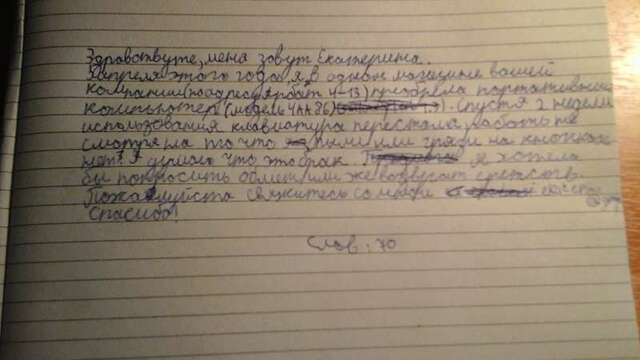 Здравствуте, мена зовут Екатерина.
3апреля этого года я в одном магазине вашей
компании(по адресу Арбат 4-13) приобрела портативный
компьпютер (модель 4АА86). Спустя 2 недели
использования клавиатура перестала работь не
смотря на то что пыли или грязи на кнопках
нет. Я думаю что это брак. Я хотела
бы попросить обмен или же возврат средств.
Пожалуйста свяжитесь со мной
Спасибо!
Слов: 70